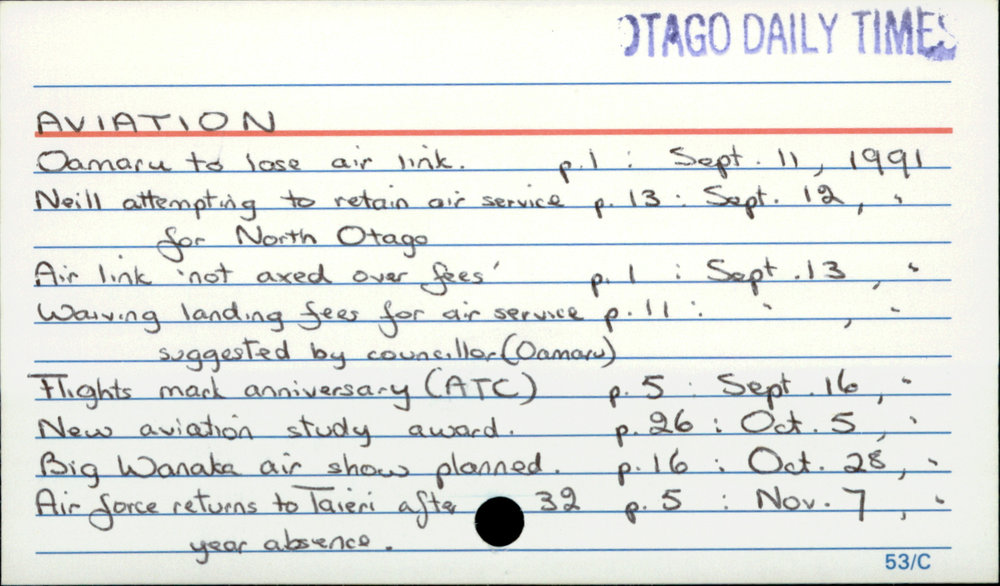 OTAGO DAILY TIMES
AVIATION
Oamaru to lose air link. p.1 : Sept. 11, 1991
Neill attempting to retain air service p. 13 : Sept. 12, "
for North Otago
Air link 'not axed over fees' p. 1 : Sept. 13, "
Waiving landing fees for air service p. 11 : " , "
suggested by councillor (Oamaru)
Flights mark anniversary (ATC) p. 5 : Sept. 16, "
New aviation study award. p. 26 : Oct. 5, "
Big Wanaka air show planned. p. 16 : Oct. 28, "
Air force returns to Taieri after 32 p. 5 : Nov. 7, "
year absence.
53/C